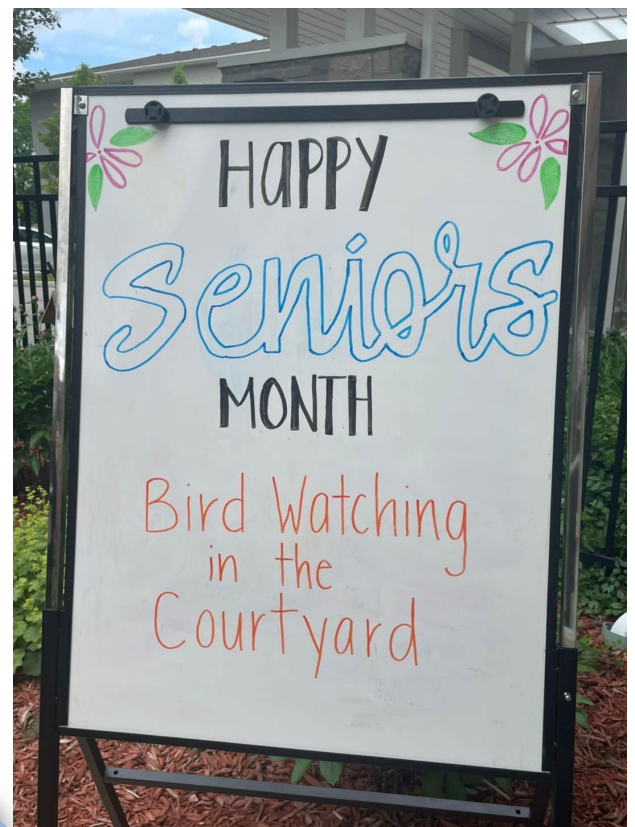 HAPPY
Seniors
MONTH
Bird Watching
in the
Courtyard